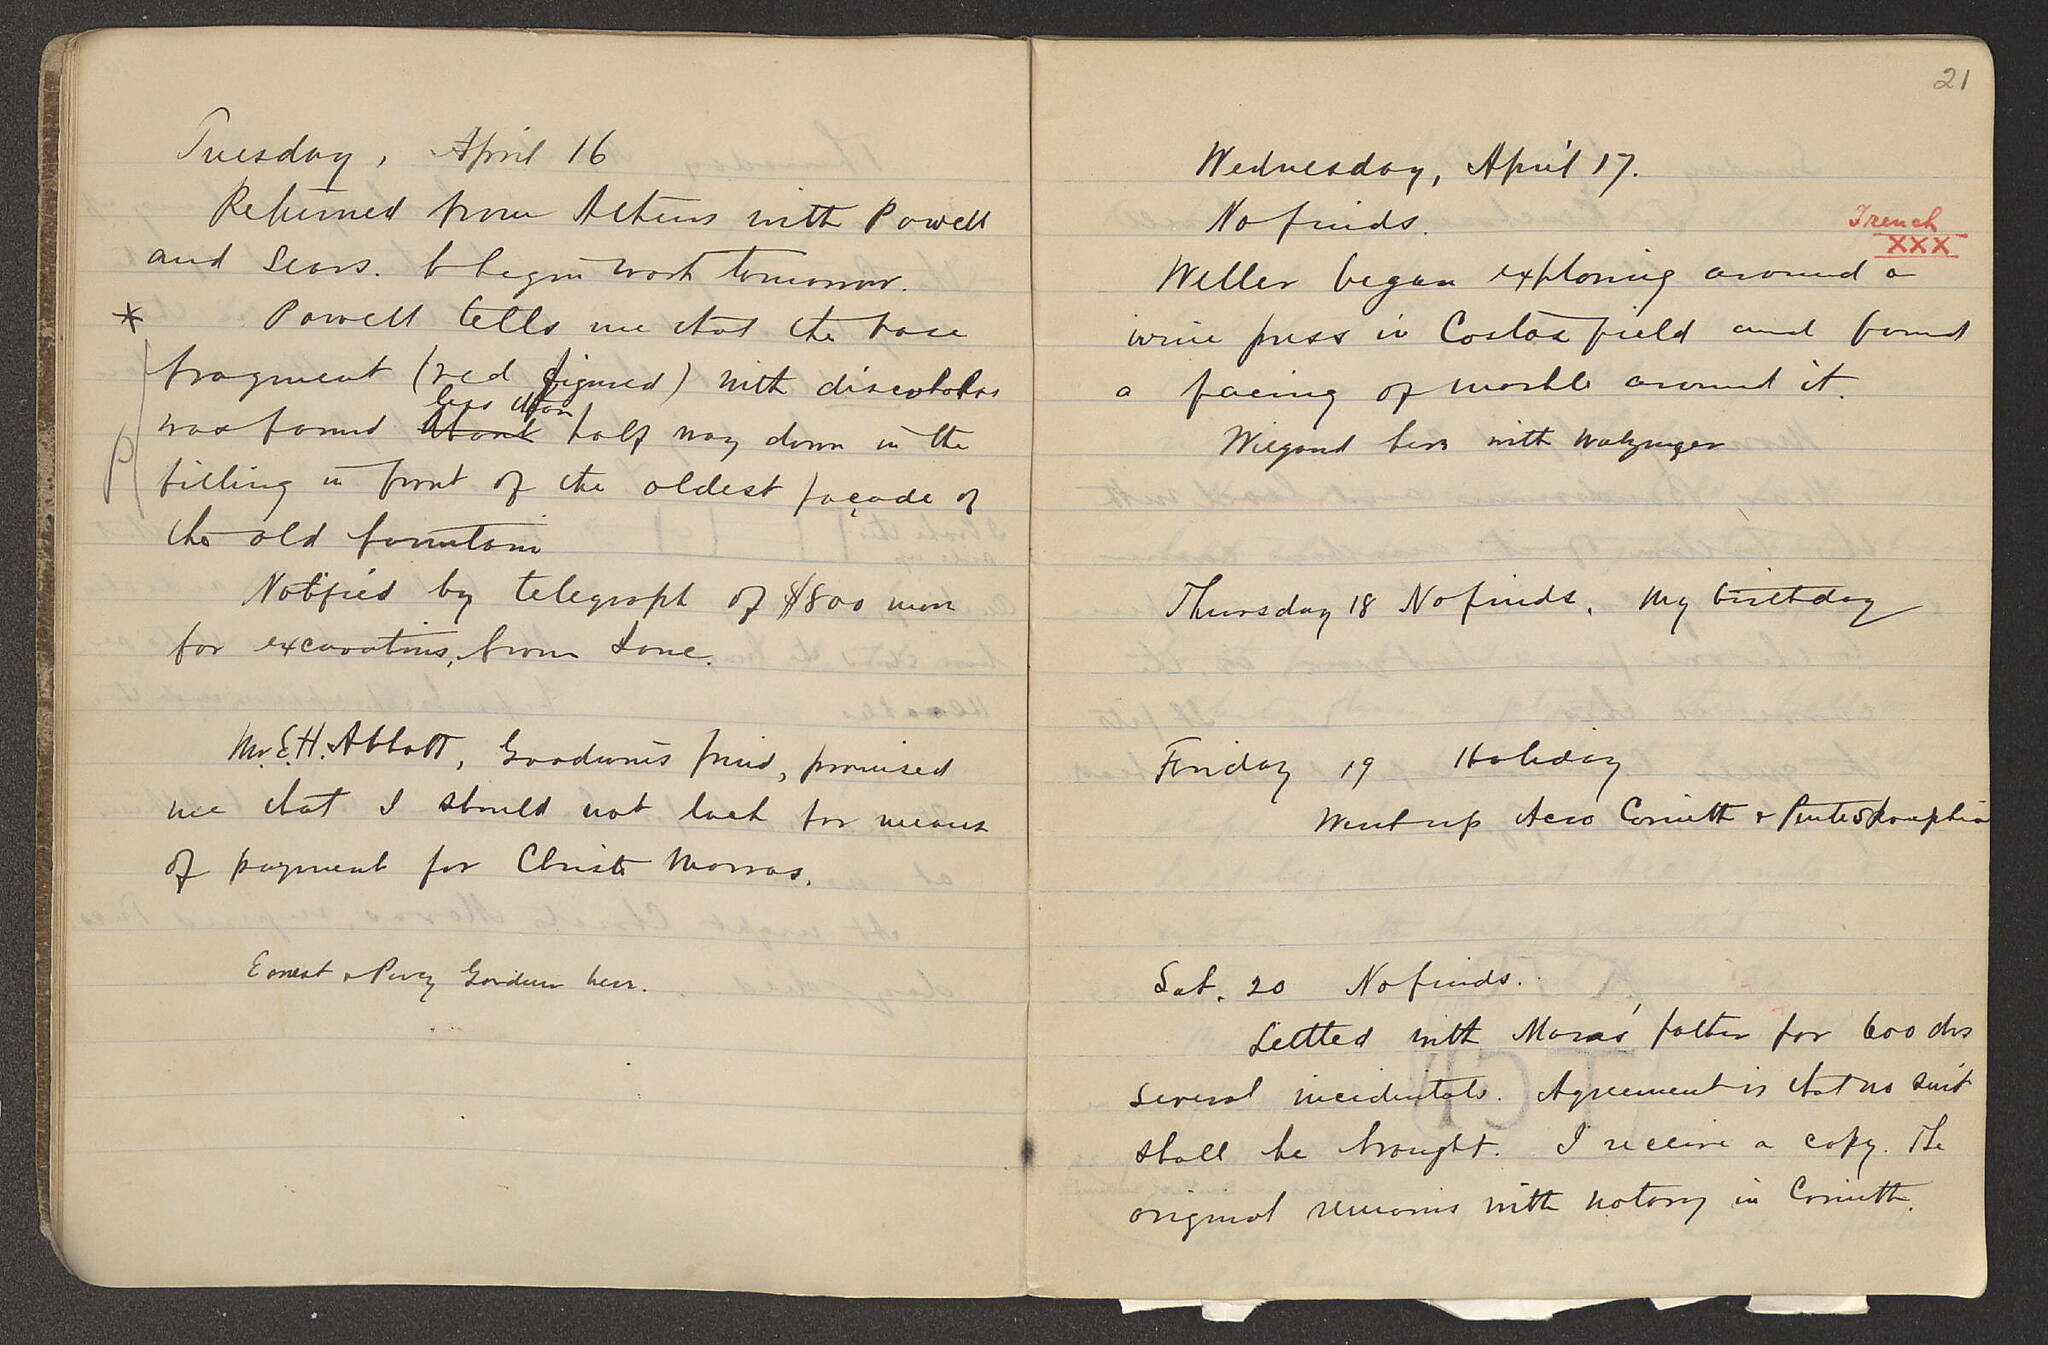 Tuesday, April 16
Returned from Athens with Powell
and Sears. to begin work tomorrow.
* Powell tells me that the vase
fragment (red figured) with discobolus
was found about less than half way down in the
P
filling in front of the oldest façade of
the old fountain
Notified by telegraph of $800 more
for excavations, from
Mr. E. H. Abbott, Goodwin's friend, promised
me that I should not lack for means
of payment for Christo Morras.
Ernest & Percy here.
21
Wednesday, April 17.
No finds.
Trench
XXX
Weller began exploring around a
wine press in Costas field and found
a facing of marble around it.
Wiegand here with Watzinger
Thursday 18 No finds. My birthday
Friday 19 Holiday
Went up Acro Corinth & Penteskouphia
Sat. 20 No finds.
Settled with Moras' father for 600 drs
several incidentals. Agreement is that no suit
shall be brought. I receive a copy. The
original remains with notary in Corinth.